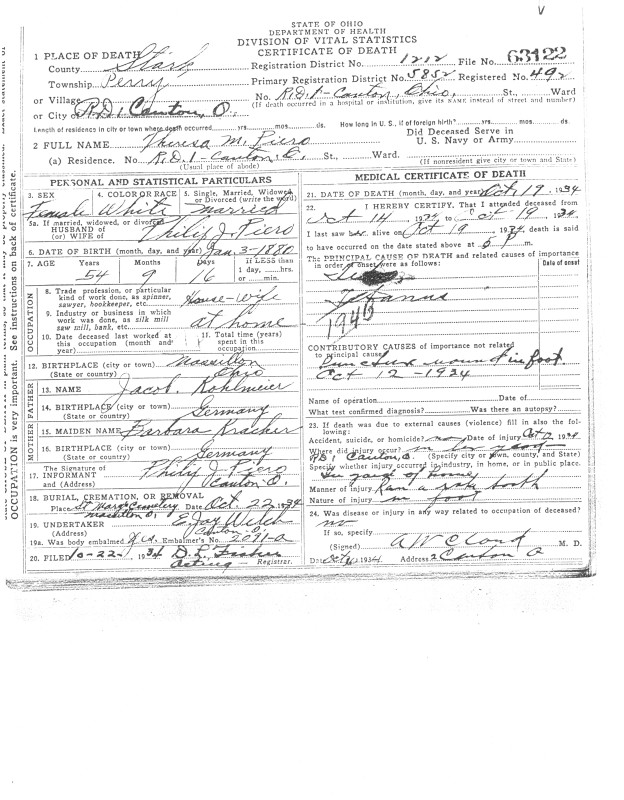 V
STATE OF OHIO
DEPARTMENT OF HEALTH
DIVISION OF VITAL STATISTICS
CERTIFICATE OF DEATH
1 PLACE OF DEATH
County Stark Registration District No. 1212 File No. 63122
Township Perry Primary Registration District No. 5852 Registered No. 492
or Village No. R.D. 1-Canton, Ohio, St., Ward
or City of R.D. 1 Canton, O. (If death occurred in a hospital or institution, give its NAME instead of street and number)
Length of residence in city or town where death occurred yrs. mos. ds. How long in U.S., if of foreign birth? yrs. mos. ds.
2 FULL NAME Theresa M. Piero Did Deceased Serve in U. S. Navy or Army
(a) Residence. No. R.D. 1-Canton, O. St., Ward.
(Usual place of abode) (If nonresident give city or town and State)
PERSONAL AND STATISTICAL PARTICULARS
3. SEX 4. COLOR OR RACE 5. Single, Married, Widowed or Divorced (write the word)
Female White Married
5a. If married, widowed, or divorced
HUSBAND of
(or) WIFE of Philip J. Piero
6. DATE OF BIRTH (month, day, and year) Jan 3-1880
7. AGE Years Months Days If LESS than 1 day, hrs. or min.
54 9 16
OCCUPATION
8. Trade, profession, or particular kind of work done, as spinner, sawyer, bookkeeper, etc. House-wife
9. Industry or business in which work was done, as silk mill saw mill, bank, etc. at home
10. Date deceased last worked at this occupation (month and year) 11. Total time (years) spent in this occupation
12. BIRTHPLACE (city or town) Massillon
(State or country) Ohio
FATHER
13. NAME Jacob Kohlmeier
14. BIRTHPLACE (city or town)
(State or country) Germany
MOTHER
15. MAIDEN NAME Barbara Kracher
16. BIRTHPLACE (city or town)
(State or country) Germany
17. The Signature of INFORMANT Philip J. Piero
and (Address) Canton O.
18. BURIAL, CREMATION, OR REMOVAL
Place St Marys Cemetery Date Oct. 22 1934
Massillon O.
19. UNDERTAKER E Jay Welch
(Address) Canton O.
19a. Was body embalmed Yes. Embalmer's No. 2091-a
20. FILED 10-22-, 1934 D.L. Fisher
acting - Registrar.
MEDICAL CERTIFICATE OF DEATH
21. DATE OF DEATH (month, day, and year) Oct 19, 1934
22. I HEREBY CERTIFY, That I attended deceased from
Oct 14, 1934 to Oct 19, 1934
I last saw her alive on Oct 19, 1934, death is said
to have occurred on the date stated above at P m.
The PRINCIPAL CAUSE OF DEATH and related causes of importance in order of onset were as follows: Date of onset
Tetanus
1946
CONTRIBUTORY CAUSES of importance not related to principal cause
Puncture wound in foot
Oct 12-1934
Name of operation Date of
What test confirmed diagnosis? Was there an autopsy?
23. If death was due to external causes (violence) fill in also the following:
Accident, suicide, or homicide? no Date of injury Oct 12 1934
Where did injury occur? in her yard
R.D. 1 Canton, O. (Specify city or town, county, and State)
Specify whether injury occurred in industry, in home, or in public place.
In yard of home,
Manner of injury Ran a rake tooth
Nature of injury in foot
24. Was disease or injury in any way related to occupation of deceased?
no
If so, specify
(Signed) A W Cloud M. D.
Date 1934 Address Canton O
OCCUPATION is very important. See instructions on back of certificate.